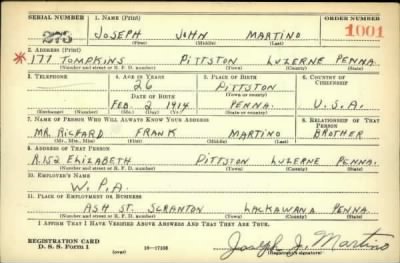 SERIAL NUMBER 1. NAME (Print) ORDER NUMBER
273 JOSEPH JOHN MARTINO 1001
(First) (Middle) (Last)
2. ADDRESS (Print)
* 177 TOMPKINS PITTSTON LUZERNE PENNA.
(Number and street or R. F. D. number) (Town) (County) (State)
3. TELEPHONE 4. AGE IN YEARS 5. PLACE OF BIRTH 6. COUNTRY OF CITIZENSHIP
26 PITTSTON
DATE OF BIRTH (Town or county)
FEB. 2 1914 PENNA. U.S.A.
(Exchange) (Number) (Mo.) (Day) (Yr.) (State or country)
7. NAME OF PERSON WHO WILL ALWAYS KNOW YOUR ADDRESS 8. RELATIONSHIP OF THAT PERSON
MR. RICHARD FRANK MARTINO BROTHER
(Mr., Mrs., Miss) (First) (Middle) (Last)
9. ADDRESS OF THAT PERSON
R.152 ELIZABETH PITTSTON LUZERNE PENNA.
(Number and street or R. F. D. number) (Town) (County) (State)
10. EMPLOYER'S NAME
W.P.A.
11. PLACE OF EMPLOYMENT OR BUSINESS
ASH ST. SCRANTON LACKAWANA PENNA.
(Number and street or R. F. D. number) (Town) (County) (State)
I AFFIRM THAT I HAVE VERIFIED ABOVE ANSWERS AND THAT THEY ARE TRUE.
REGISTRATION CARD Joseph J. Martino
D. S. S. Form 1 (over) (Registrant's signature)